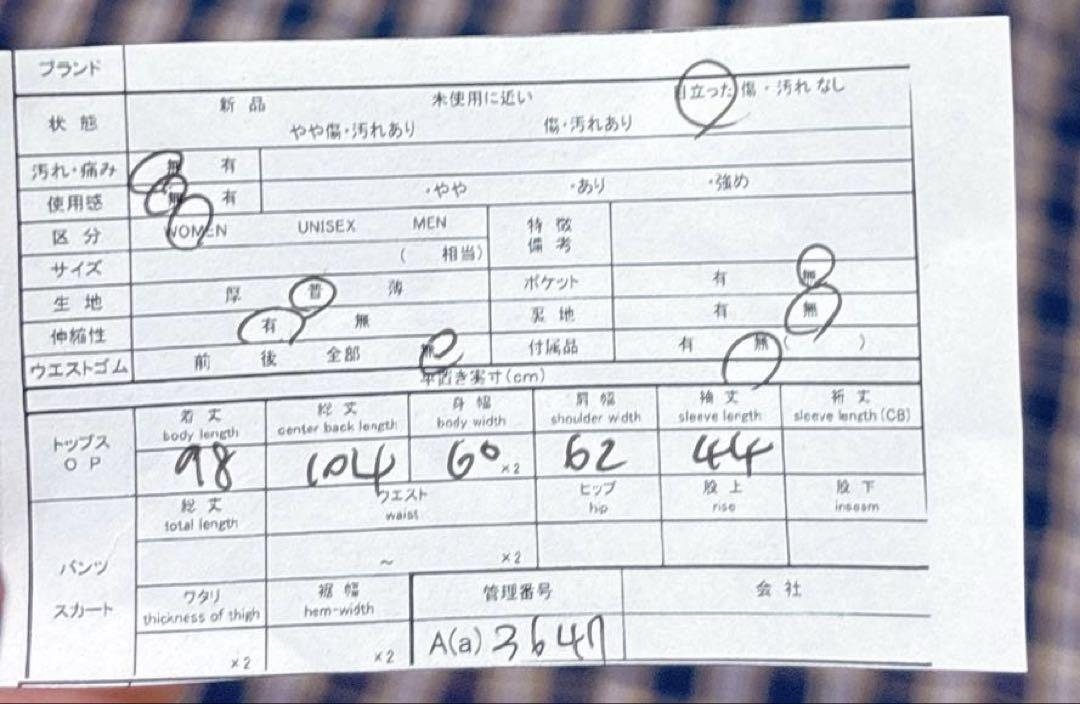 ブランド
状態 新品 未使用に近い 目立った傷・汚れなし
やや傷・汚れあり 傷・汚れあり
汚れ・痛み 無 有
使用感 無 有 ・やや ・あり ・強め
区分 WOMEN UNISEX MEN 特徴備考
サイズ ( 相当)
生地 厚 普 薄 ポケット 有 無
伸縮性 有 無 裏地 有 無
ウエストゴム 前 後 全部 無 付属品 有 無 ( )
平置き実寸(cm)
トップス OP 着丈 総丈 身幅 肩幅 袖丈 裄丈
body length center back length body width shoulder width sleeve length sleeve length (CB)
98 104 60 ×2 62 44
総丈 ウエスト ヒップ 股上 股下
total length waist hip rise inseam
パンツ スカート ~ ×2
ワタリ 裾幅 管理番号 会社
thickness of thigh hem-width
×2 ×2 A(a) 3647